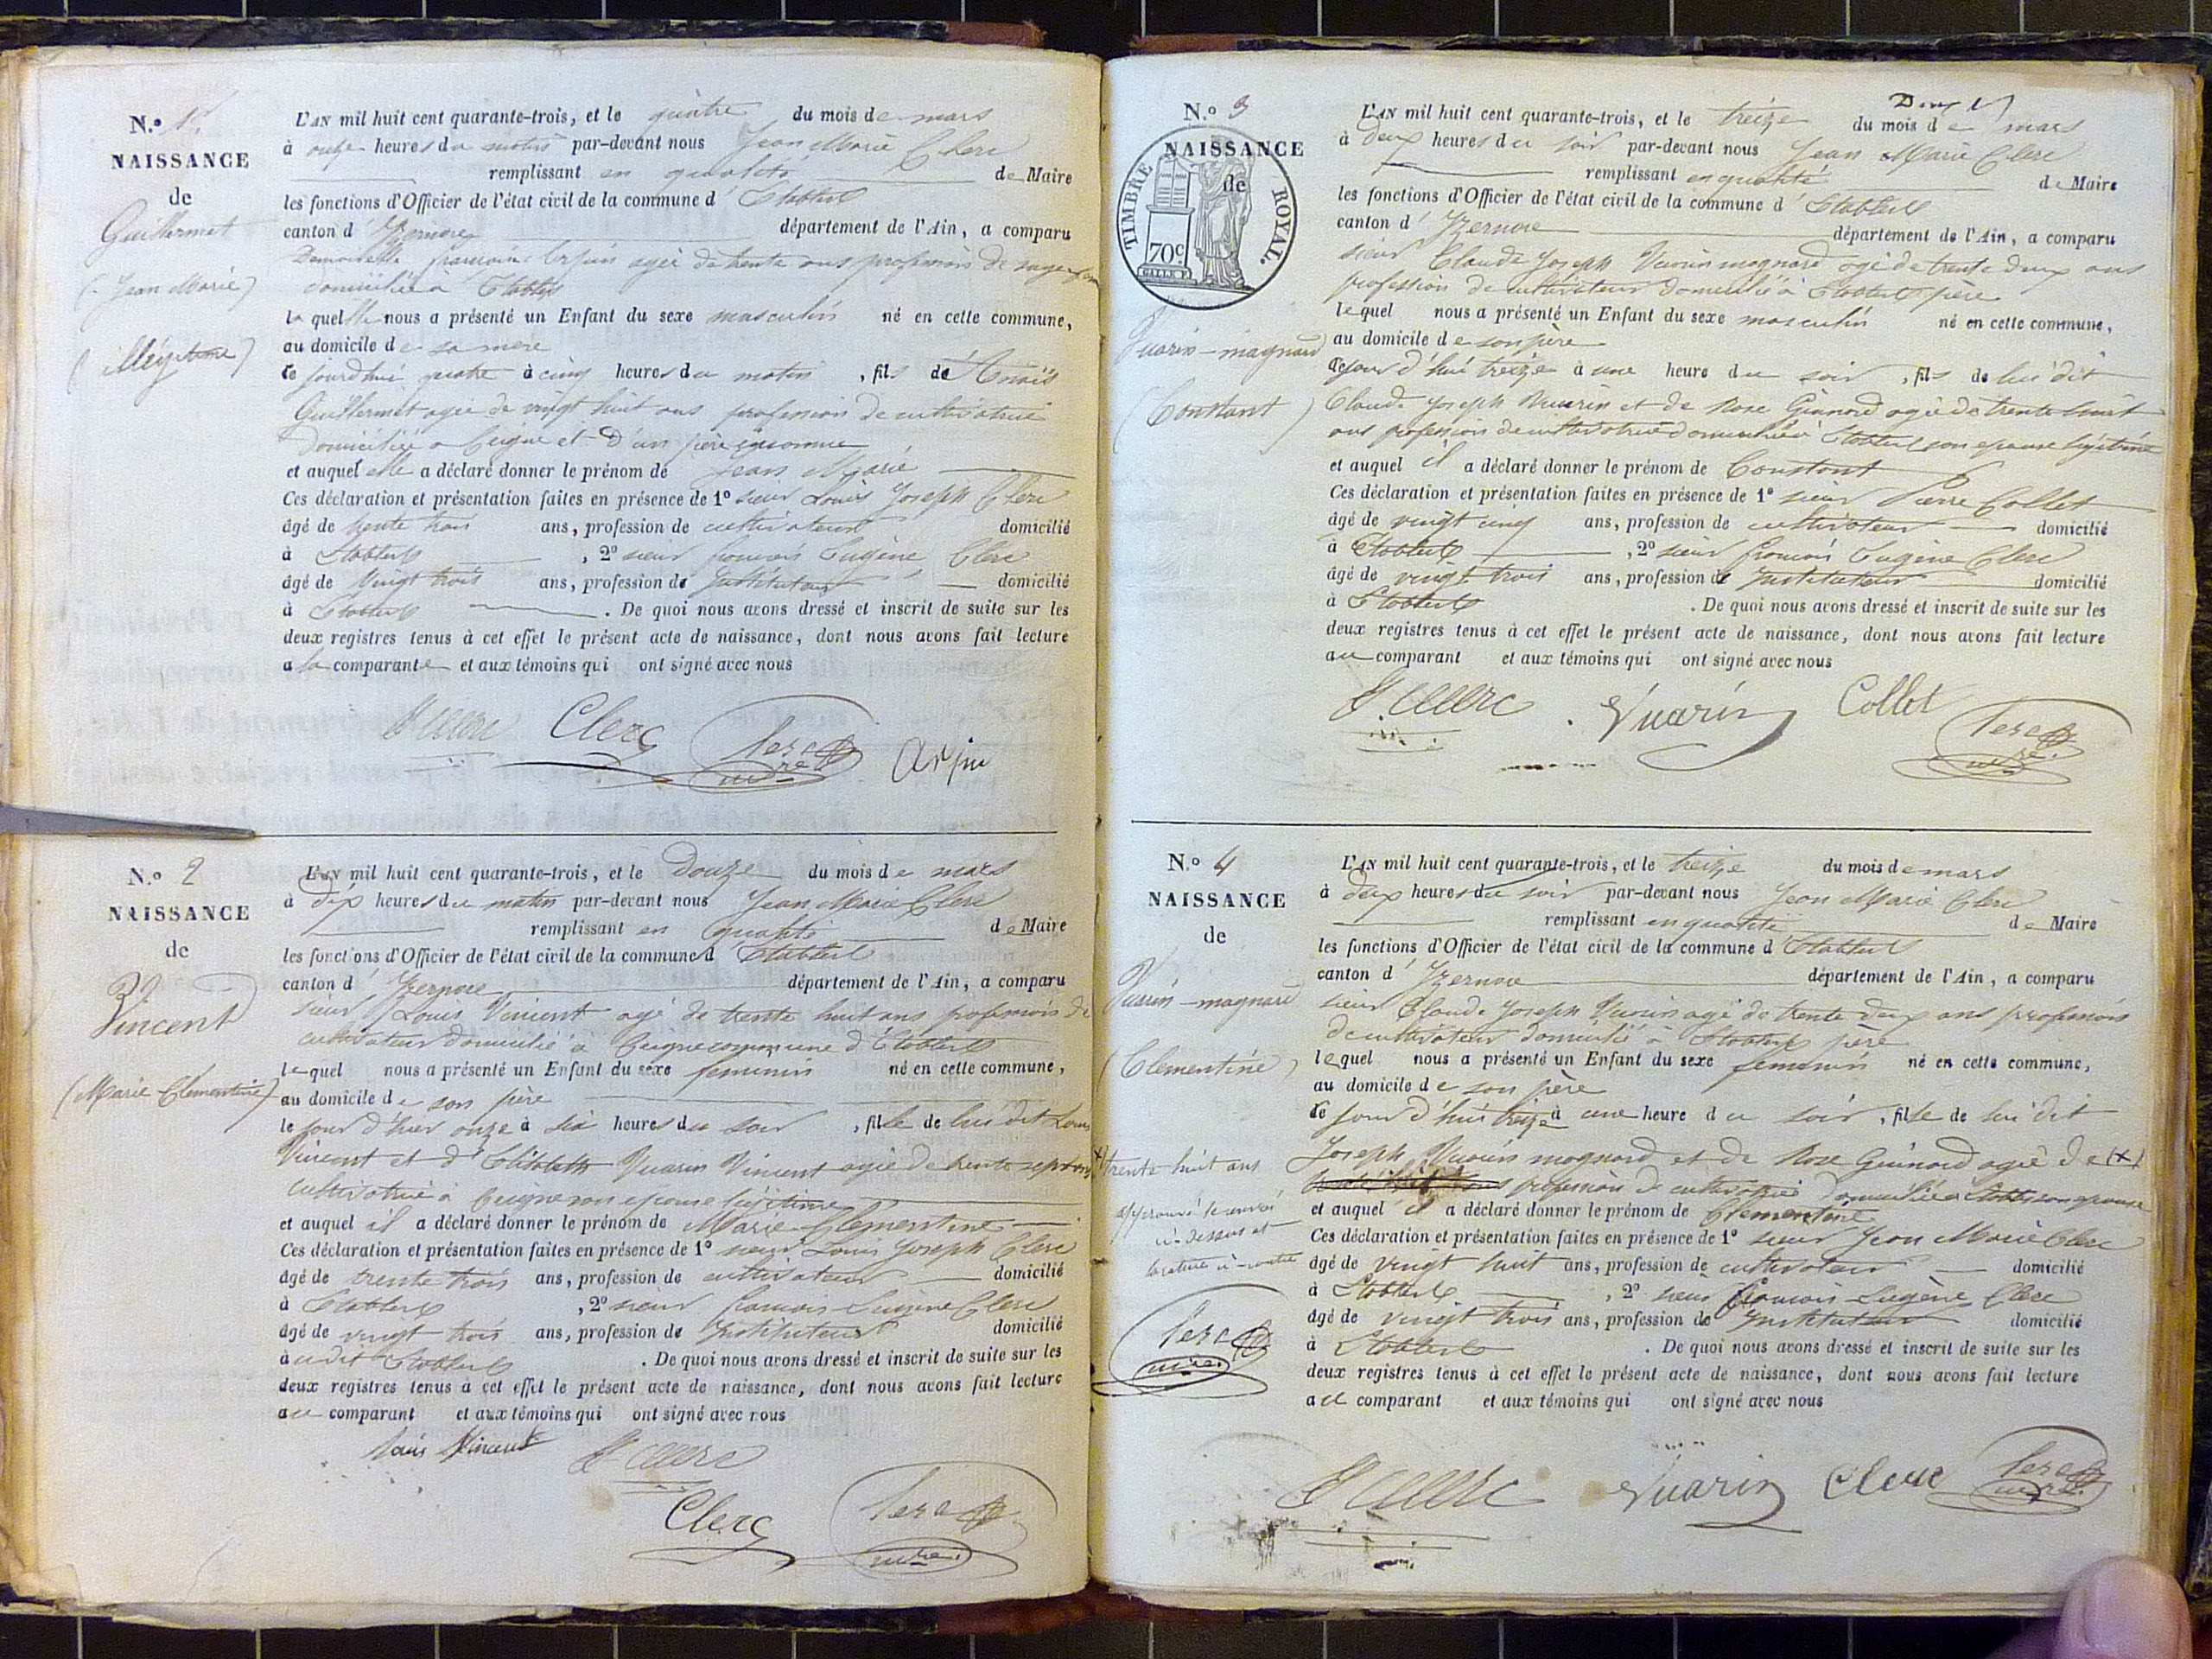 N.o 1.
NAISSANCE
de
Guillermet
(Jean Marie)
(illégitime)
L'AN mil huit cent quarante-trois, et le quatre du mois de mars
à onze heures du matin par-devant nous Jean Marie Clerc
remplissant en qualité de Maire
les fonctions d'Officier de l'état civil de la commune d' Etables
canton d' Izernore département de l'Ain, a comparu
Demoiselle françoise agée de trente ans profession de sage femme
domiciliée à Etables
la quelle nous a présenté un Enfant du sexe masculin né en cette commune,
au domicile de sa mere
ce jourd'hui quatre à cinq heures du matin, fils de
Guillermet agée de vingt huit ans profession de cultivatrice
domiciliée a Ceigne et d'un père inconnu
et auquel elle a déclaré donner le prénom de Jean Marie
Ces déclaration et présentation faites en présence de 1º sieur Louis Joseph Clerc
âgé de trente trois ans, profession de cultivateur domicilié
à Etables, 2º sieur françois Eugène Clerc
âgé de vingt trois ans, profession de Instituteur domicilié
à Etables. De quoi nous avons dressé et inscrit de suite sur les
deux registres tenus à cet effet le présent acte de naissance, dont nous avons fait lecture
a la comparante et aux témoins qui ont signé avec nous
Clerc Clerc mre
N.o 2
NAISSANCE
de
Vincent
(Marie Clementine)
L'AN mil huit cent quarante-trois, et le Douze du mois de mars
à dix heures du matin par-devant nous Jean Marie Clerc
remplissant en qualité de Maire
les fonctions d'Officier de l'état civil de la commune d' Etables
canton d' Izernore département de l'Ain, a comparu
sieur Louis Vincent agé de trente huit ans profession de
cultivateur domicilié à Ceigne commune d'Etables
lequel nous a présenté un Enfant du sexe feminin né en cette commune,
au domicile de son père
le jour d'hier onze à six heures du soir, fille de lui dit Louis
Vincent et d'Elisabeth Vuarin Vincent agée de trente sept ans
cultivatrice à Ceigne son epouse légitime
et auquel il a déclaré donner le prénom de Marie Clementine
Ces déclaration et présentation faites en présence de 1º sieur Louis Joseph Clerc
âgé de trente trois ans, profession de cultivateur domicilié
à Etables, 2º sieur françois Eugène Clerc
âgé de vingt trois ans, profession de Instituteur domicilié
à udit Etables. De quoi nous avons dressé et inscrit de suite sur les
deux registres tenus à cet effet le présent acte de naissance, dont nous avons fait lecture
au comparant et aux témoins qui ont signé avec nous
Louis Vincent
Clerc Clerc mre
N.o 3
NAISSANCE
de
TIMBRE ROYAL.
70c
Vuarin-magnard
(Constant)
L'AN mil huit cent quarante-trois, et le treize du mois de mars
à deux heures du soir par-devant nous Jean Marie Clerc
remplissant en qualité de Maire
les fonctions d'Officier de l'état civil de la commune d' Etables
canton d' Izernore département de l'Ain, a comparu
sieur Claude Joseph Vuarin magnard agé de trente deux ans
profession de cultivateur domicilié à Etables père
lequel nous a présenté un Enfant du sexe masculin né en cette commune,
au domicile de son père
ce jour d'hui treize à une heure du soir, fils de lui dit
Claude Joseph Vuarin et de Rose Guinard agée de trente huit
ans profession de cultivatrice domiciliée à Etables son epouse légitime
et auquel il a déclaré donner le prénom de Constant
Ces déclaration et présentation faites en présence de 1º sieur Pierre Collet
âgé de vingt cinq ans, profession de cultivateur domicilié
à Etables, 2º sieur françois Eugène Clerc
âgé de vingt trois ans, profession de Instituteur domicilié
à Etables. De quoi nous avons dressé et inscrit de suite sur les
deux registres tenus à cet effet le présent acte de naissance, dont nous avons fait lecture
au comparant et aux témoins qui ont signé avec nous
Clerc Vuarin Collet Clerc mre
N.o 4
NAISSANCE
de
Vuarin-magnard
(Clementine)
L'AN mil huit cent quarante-trois, et le treize du mois de mars
à deux heures du soir par-devant nous Jean Marie Clerc
remplissant en qualité de Maire
les fonctions d'Officier de l'état civil de la commune d' Etables
canton d' Izernore département de l'Ain, a comparu
sieur Claude Joseph Vuarin agé de trente deux ans profession
de cultivateur domicilié à Etables père
lequel nous a présenté un Enfant du sexe feminin né en cette commune,
au domicile de son père
ce jour d'hui treize à une heure du soir, fille de lui dit
Joseph Vuarin magnard et de Rose Guinard agée de (x)
profession de cultivatrice domiciliée à Etables son epouse
et auquel il a déclaré donner le prénom de Clementine
Ces déclaration et présentation faites en présence de 1º sieur Jean Marie Clerc
âgé de vingt huit ans, profession de cultivateur domicilié
à Etables, 2º sieur françois Eugène Clerc
âgé de vingt trois ans, profession de Instituteur domicilié
à Etables. De quoi nous avons dressé et inscrit de suite sur les
deux registres tenus à cet effet le présent acte de naissance, dont nous avons fait lecture
au comparant et aux témoins qui ont signé avec nous
(x) trente huit ans
approuvé le renvoi
ci-dessus et
la rature ci-contre
Clerc mre
Clerc Vuarin Clerc Clerc mre